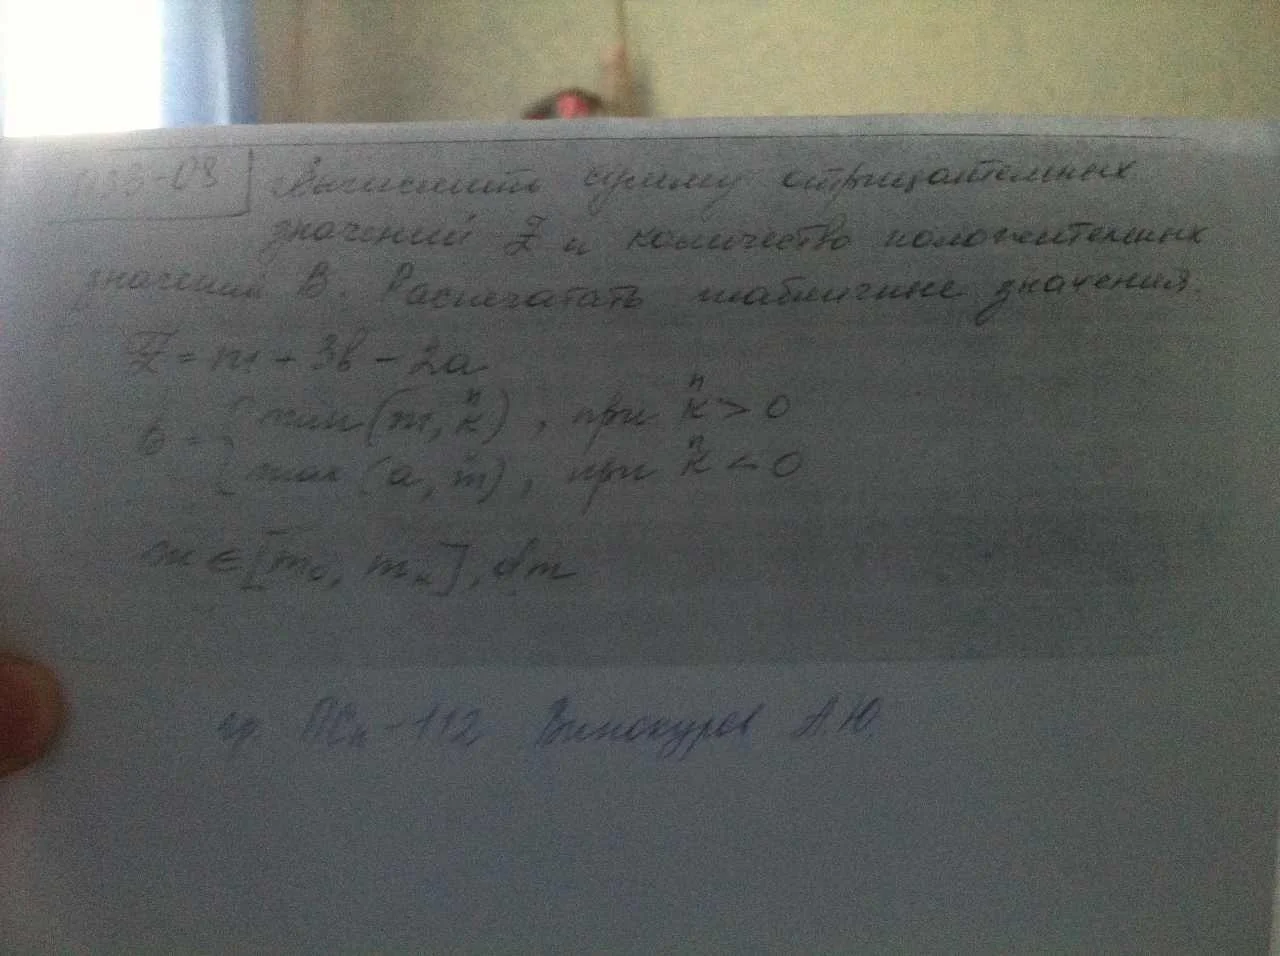 Вычислить сумму отрицательных
значений Z и количество положительных
значений B. Распечатать табличные значения.
Z = m + 3b - 2a
n n
b = { min (m, k), при k > 0
n
max (a, m), при k < 0
m ∈ [m₀, mₙ], dm
гр. -112 Винокуров А.Ю.